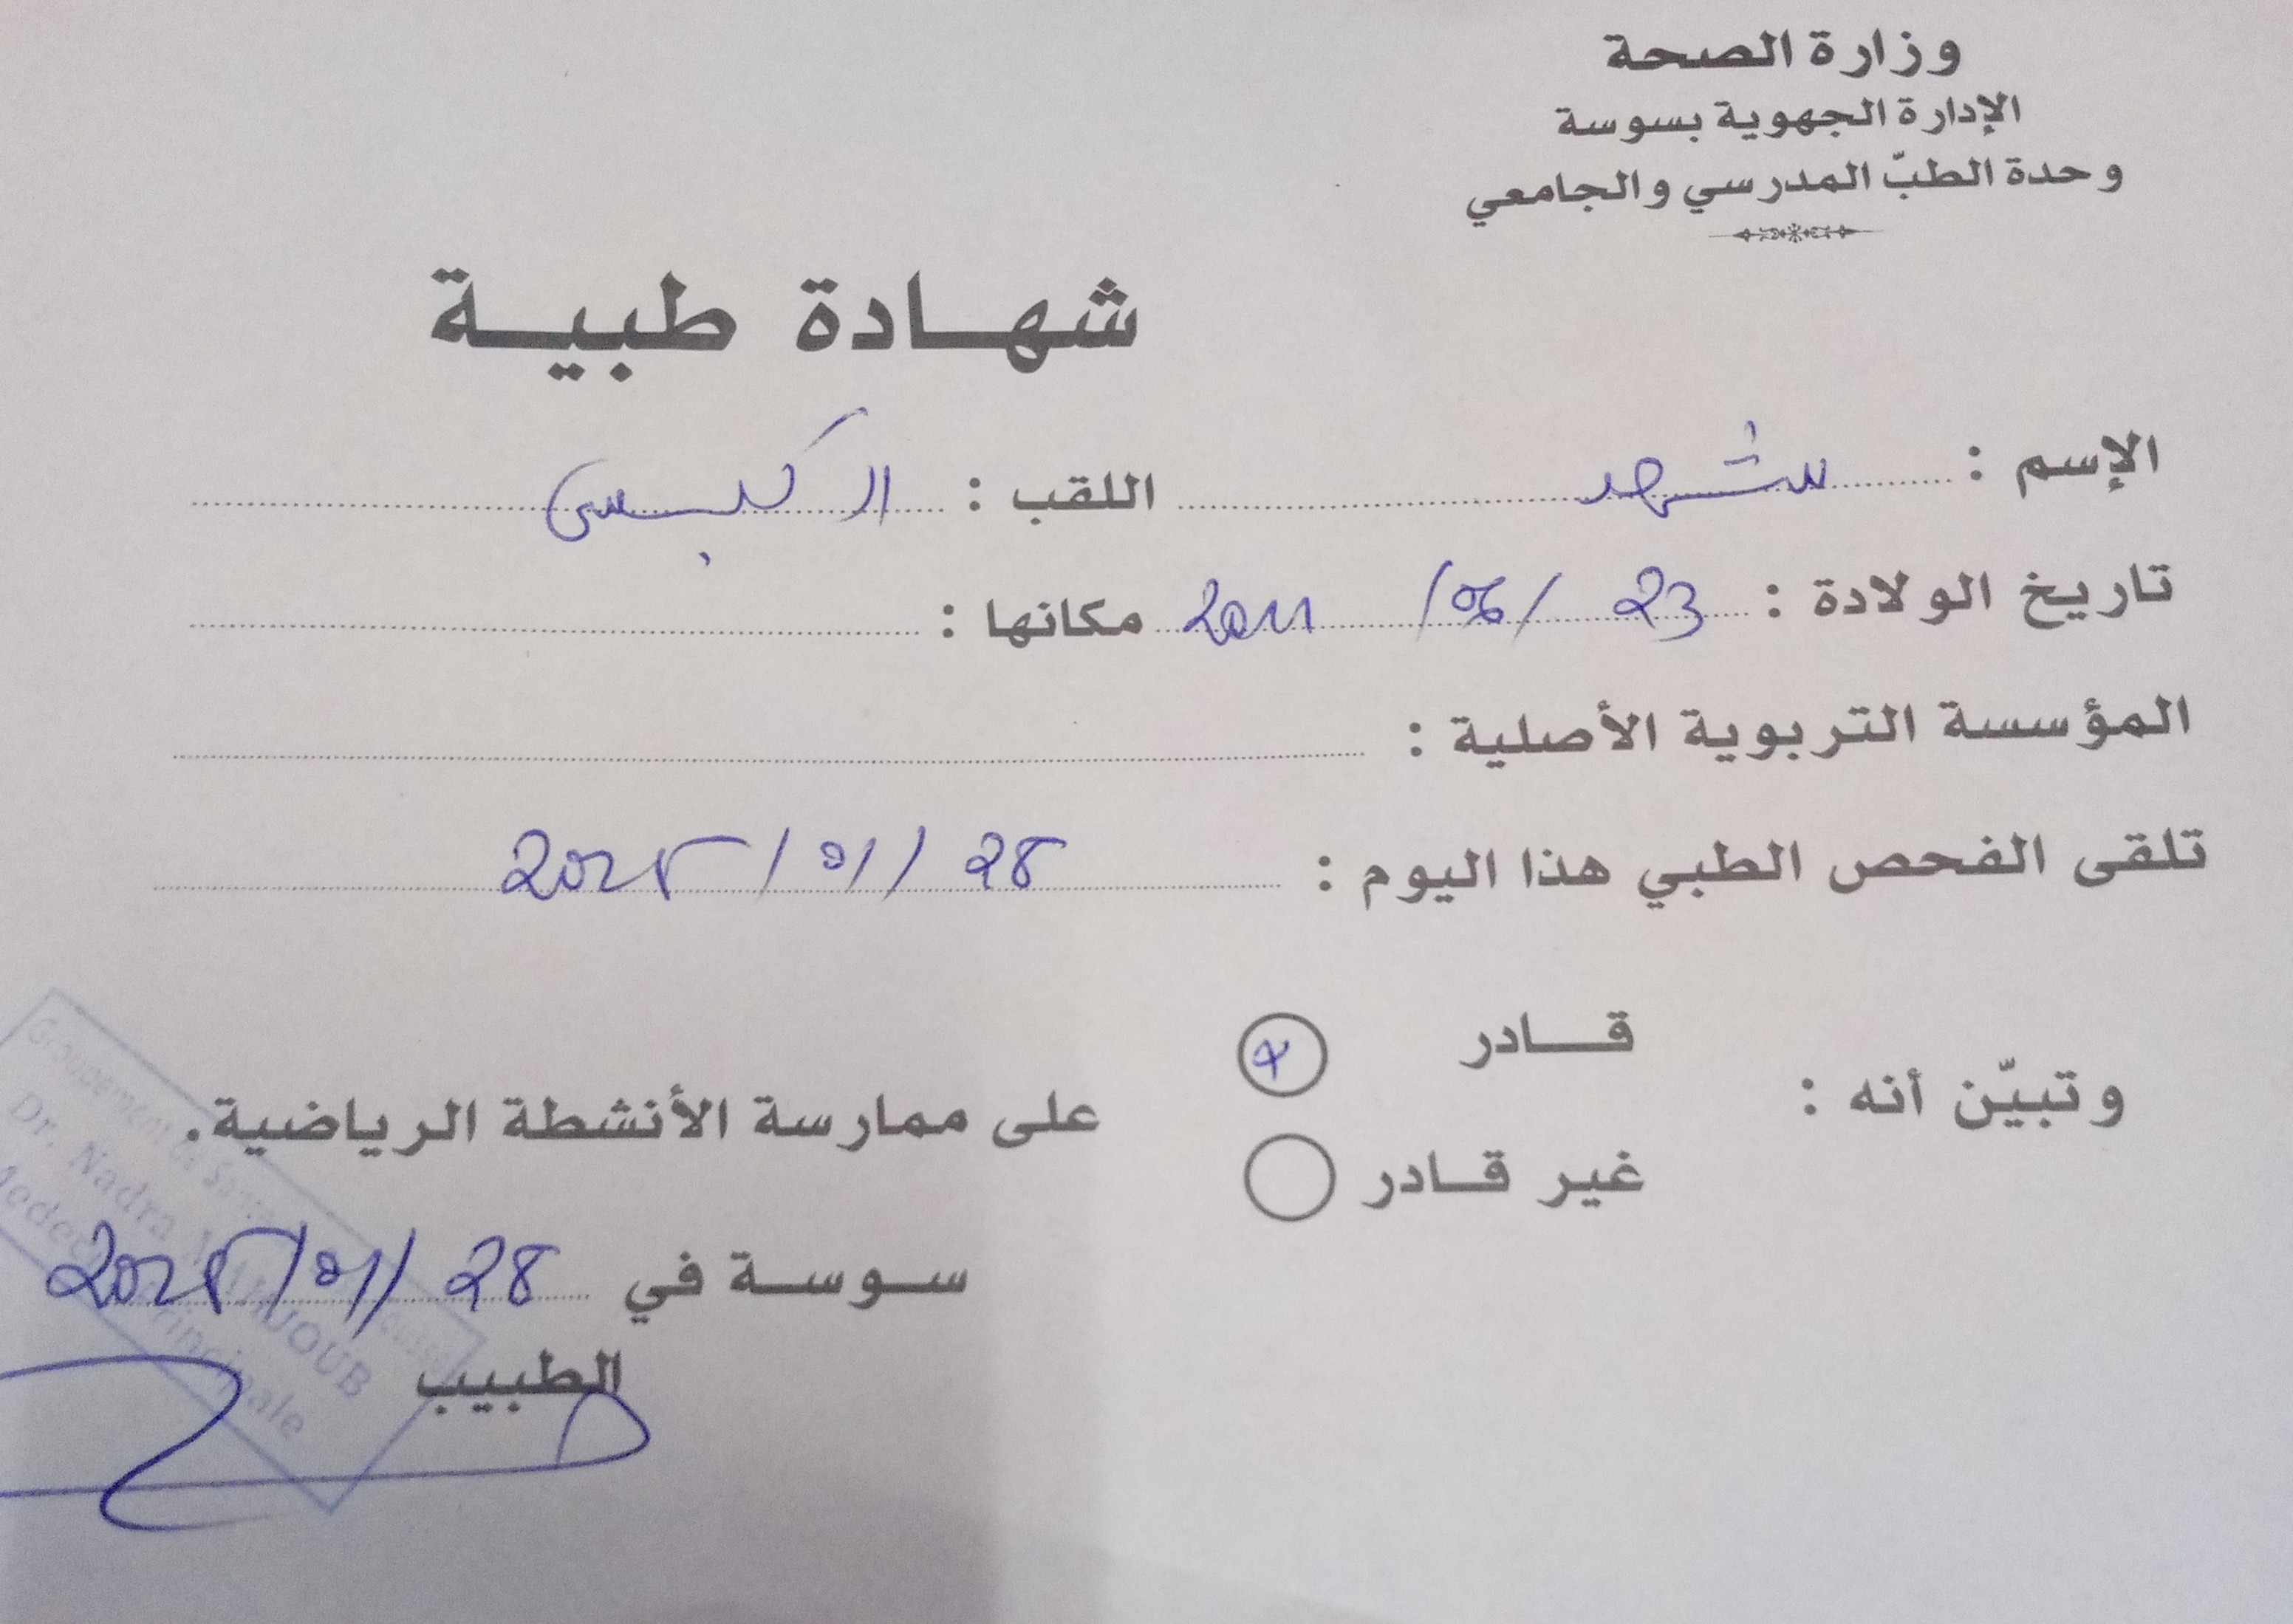 وزارة الصحة
الإدارة الجهوية بسوسة
وحدة الطبّ المدرسي والجامعي
شهادة طبية
الإسم : شهد اللقب : الكبسي
تاريخ الولادة : 23 /06/ 2011 مكانها :
المؤسسة التربوية الأصلية :
تلقى الفحص الطبي هذا اليوم : 28 /01/ 2025
وتبيّن أنه :
قادر
غير قادر
على ممارسة الأنشطة الرياضية.
سوسة في 28 /01/ 2025
الطبيب
Groupement de
Dr. Nadra
Principale